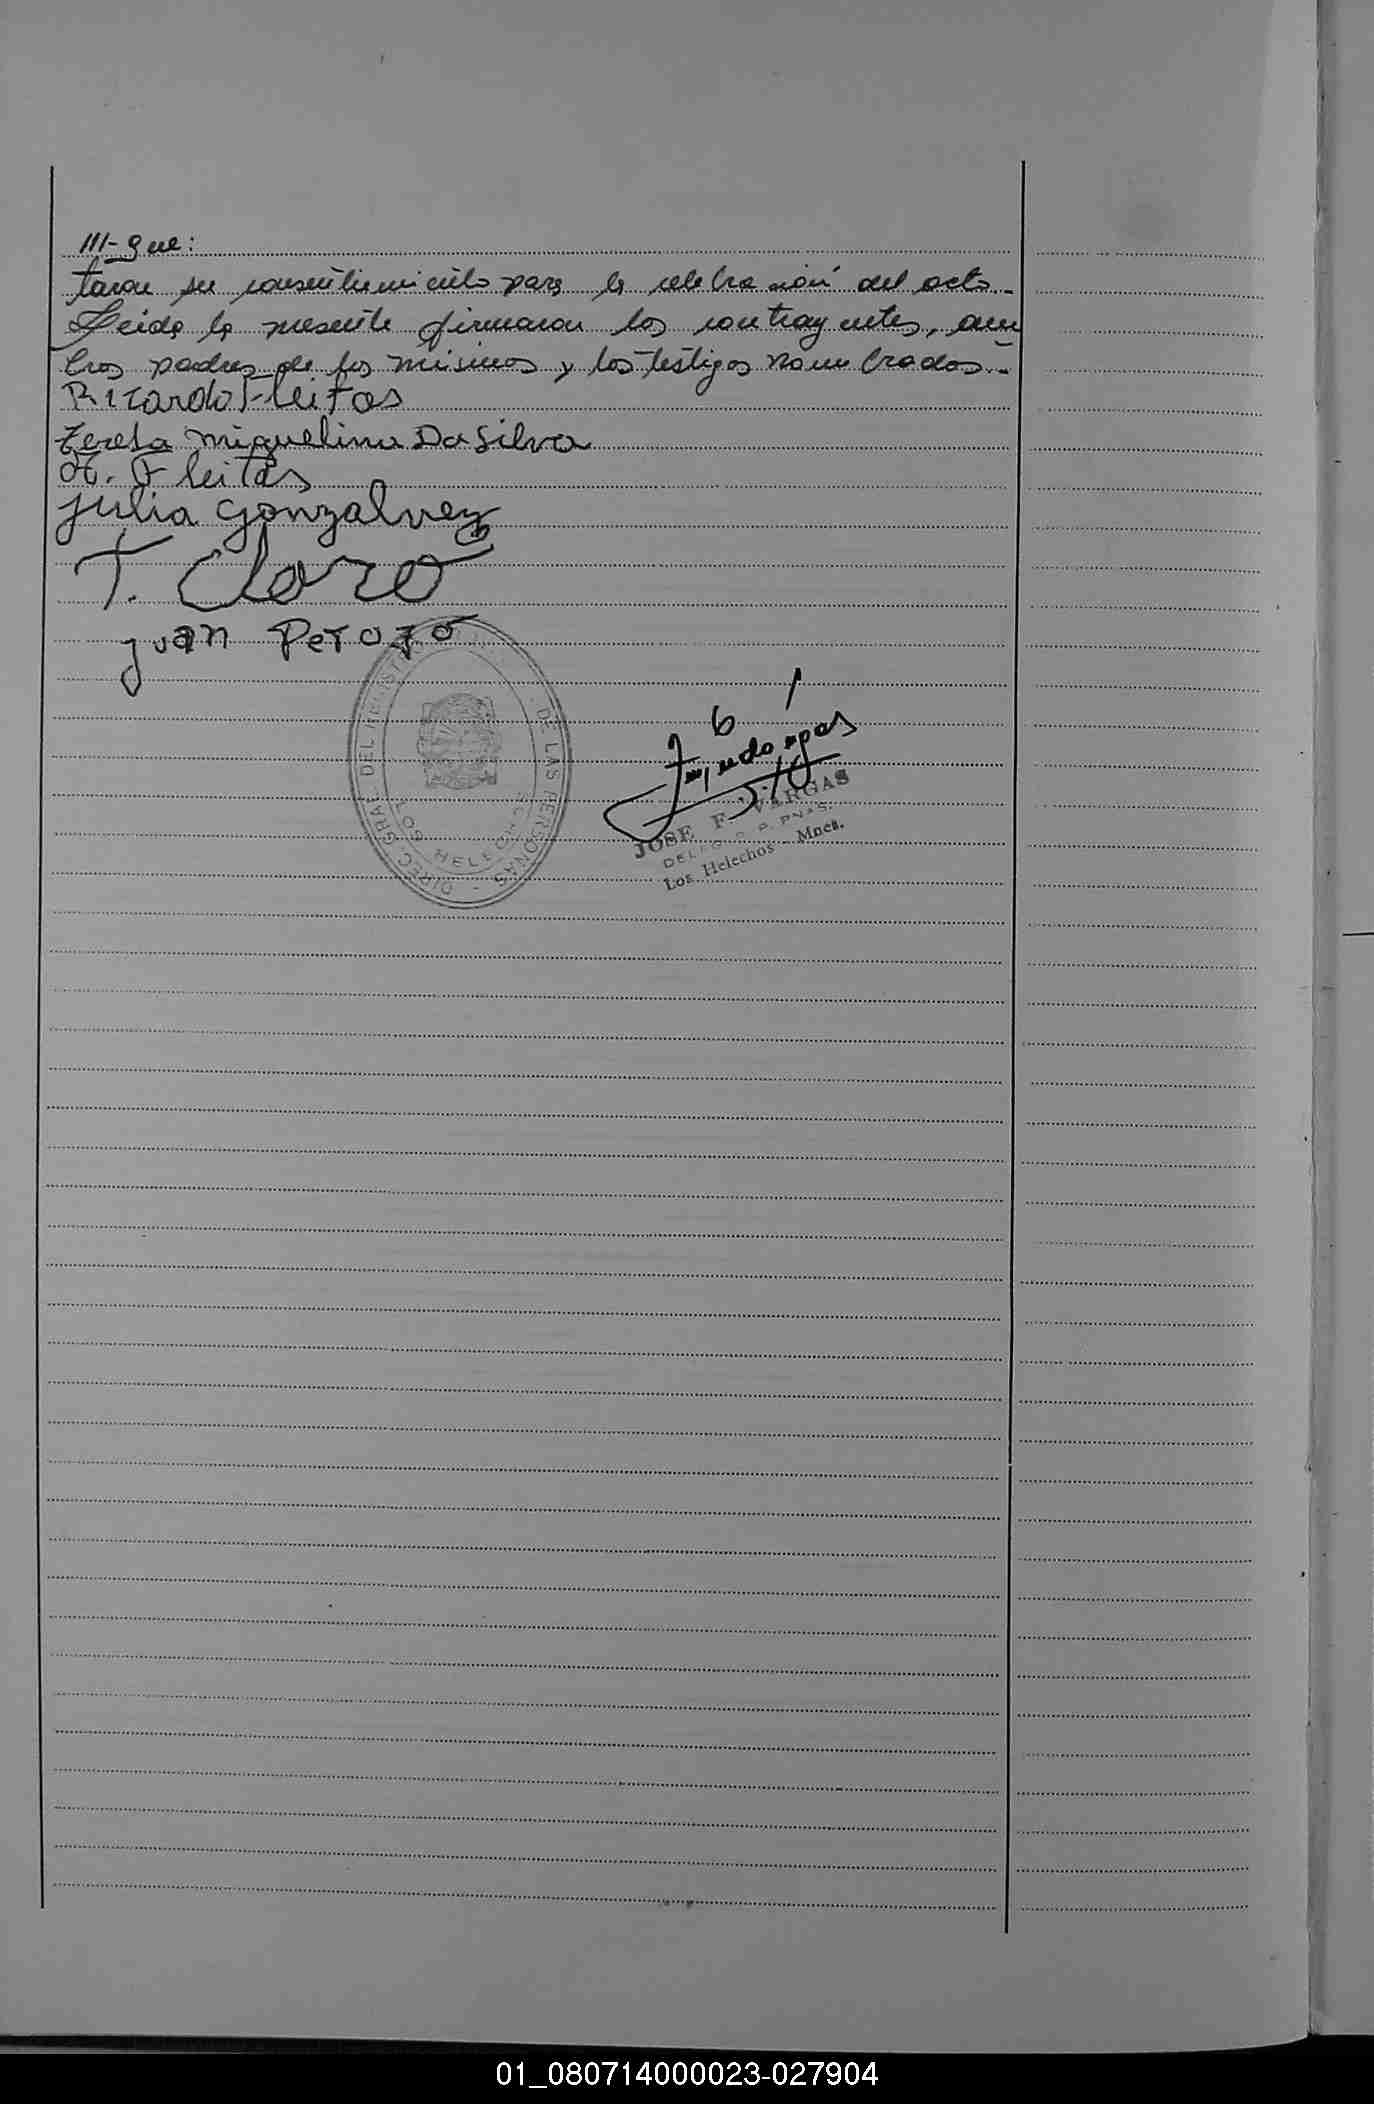 III-que:
taron su consentimiento para la celebración del acto.-
Leida la presente firmaron los contrayentes, am
bos padres de los mismos y los testigos nombrados.-
Ricardo Fleitas
teresa miguelina Da Silva
A. Fleitas
julia gonzalvez
T. Claro
juan Perozo
DIREC. GRAL. DEL REGISTRO DE LAS PERSONAS
LOS HELECHOS
JOSE F. VARGAS
DELEG. R. P. PNAS.
Los Helechos - Mnes.
01_080714000023-027904